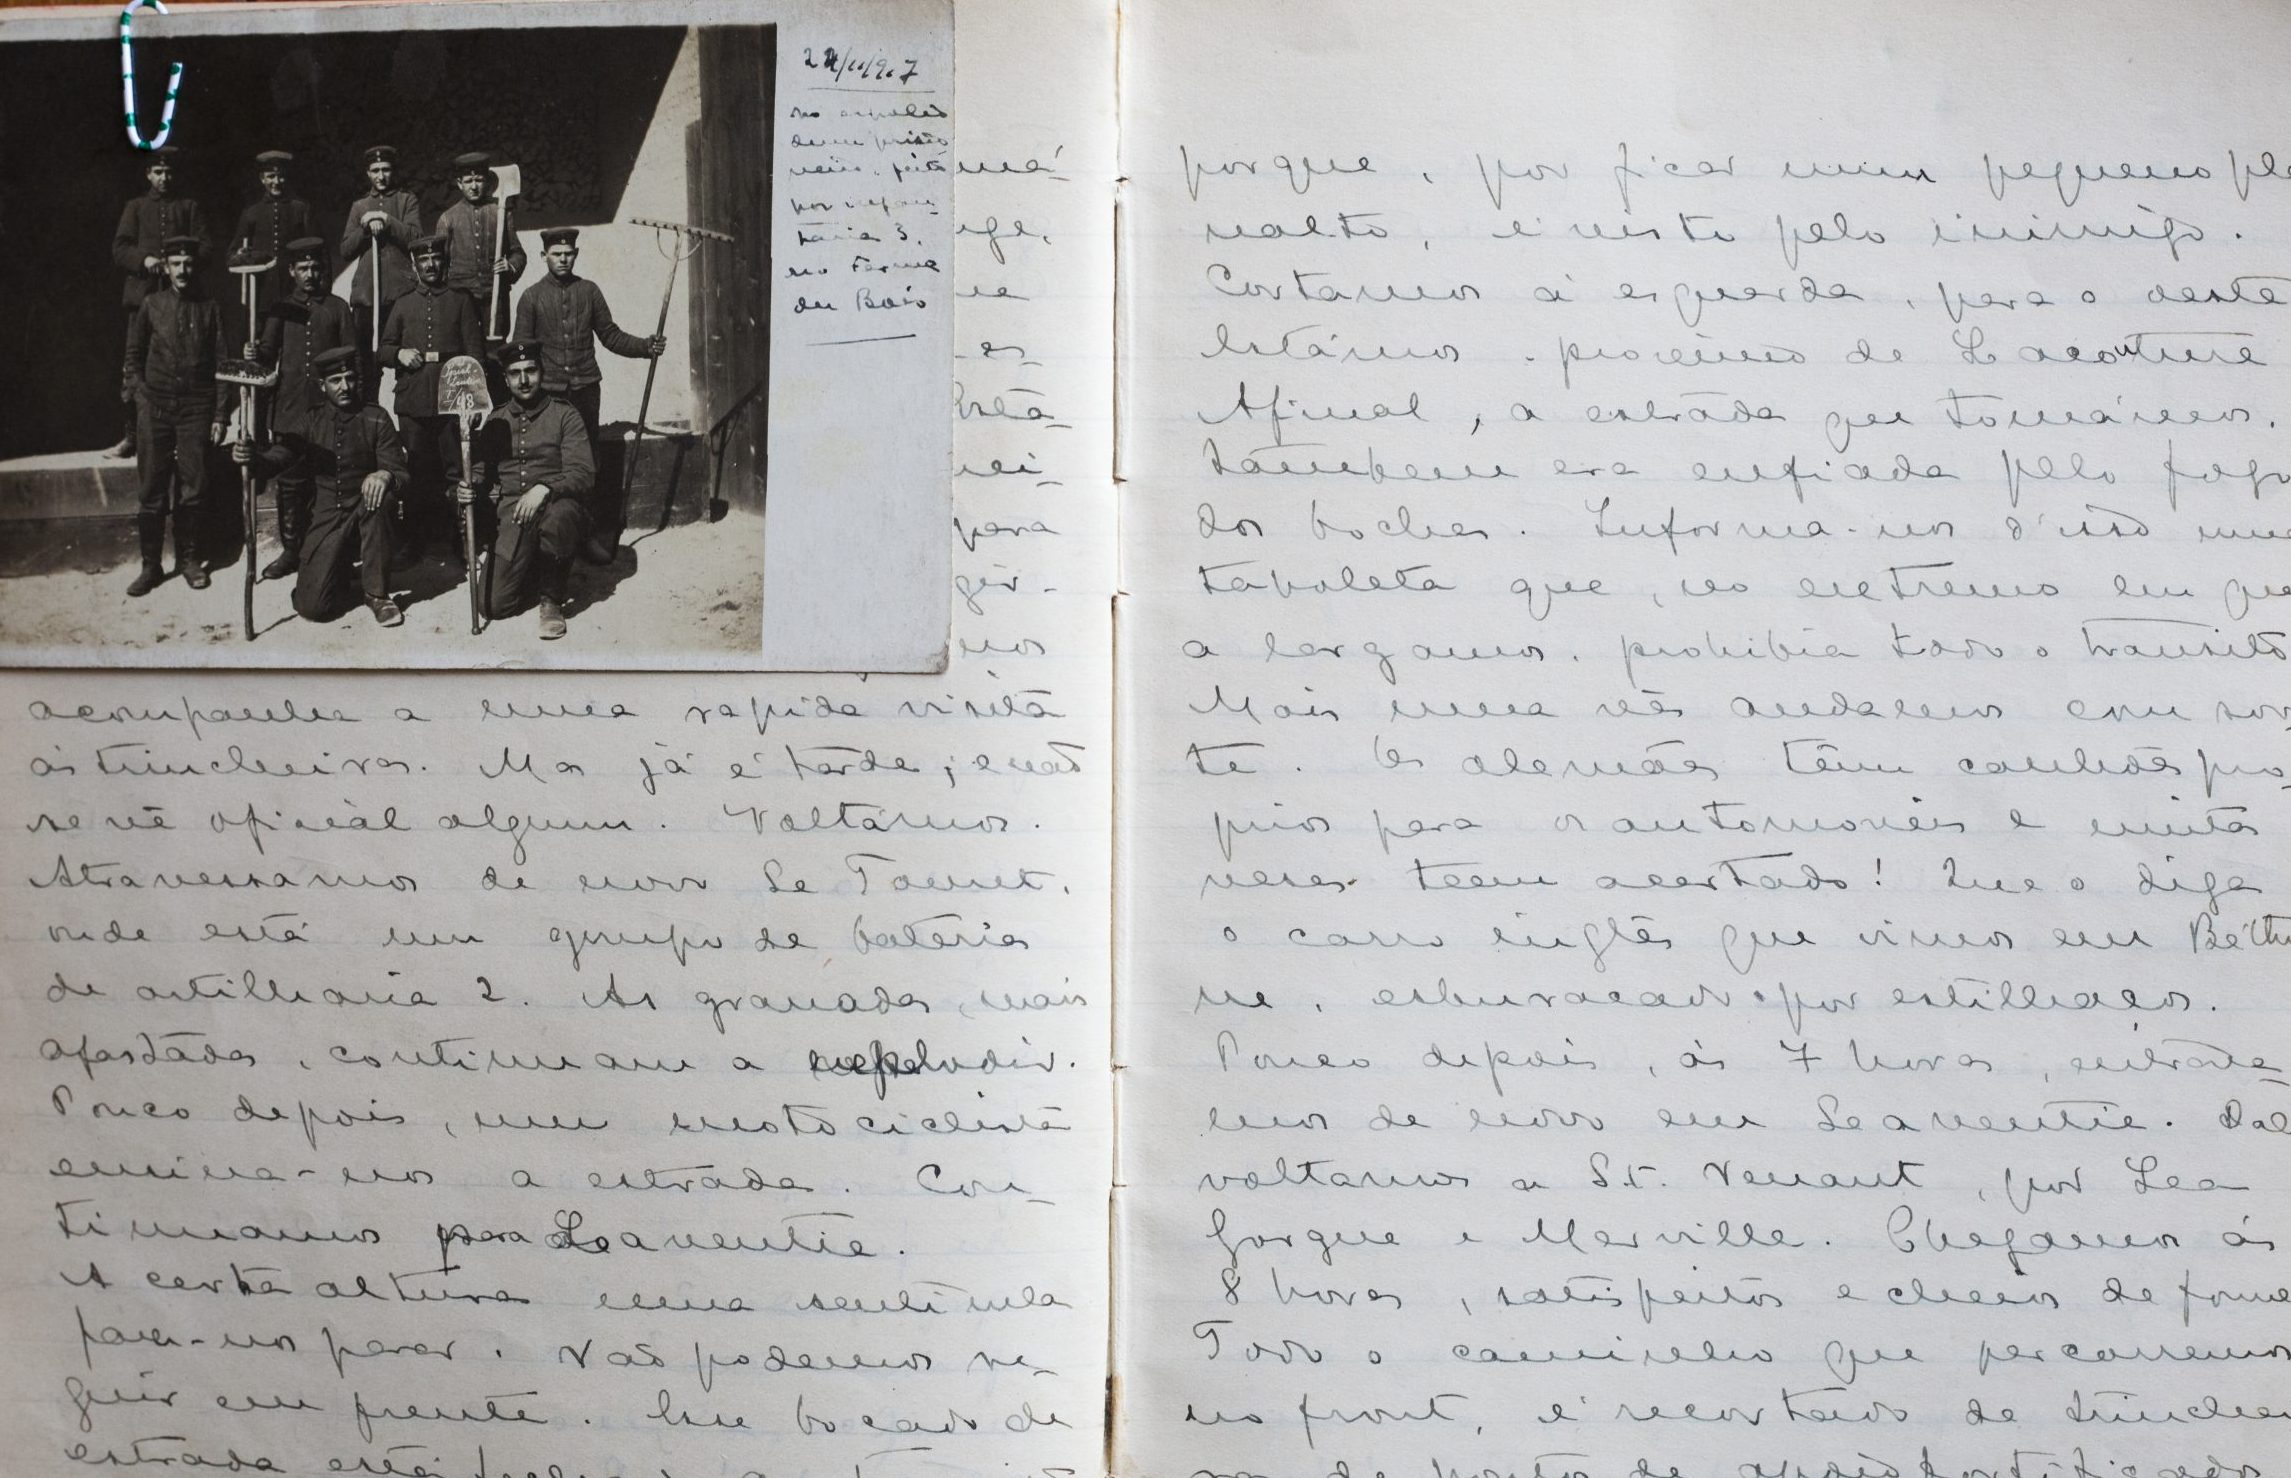 22/11/917
no espolio
dum prisio
neiro, feito
por infan-
taria 3,
no Ferme
du Bois
T/48
má-
ge,
ue
es-
está-
nei-
para
gir-
nos
acompanhe a uma rapida visita
ás trincheiras. Mas já é tarde; e não
se vê oficial algum. Voltámos.
Atravessamos de novo Le Touret,
onde está um grupo de baterias
de artilharia 2. As granadas, mais
afastadas, continuam a explodir.
Pouco depois, um motociclista
ensina-nos a estrada. Con-
tinuamos para Laventie.
A certa altura uma sentinela
faz-nos parar. Não podemos se-
guir em frente. Esse bocado de
estrada está
porque, por ficar num pequeno pla
nalto, é visto pelo inimigo.
Cortamos á esquerda, para o oeste
Estámos proximo de Lacouture
Afinal, a estrada que tomámos,
tambem era enfiada pelo fogo
dos boches. Informa-nos d'isso uma
taboleta que, no extremo em que
a largamos, prohibia todo o transito
Mais uma vês andamos com sor-
te. Os alemães têm canhões pro-
prios para os automoveis e muitas
veses teem acertado! Que o diga
o carro inglês que vimos em Béthu
ne, esburacado por estilhaços.
Pouco depois, ás 7 horas, entráva-
mos de novo em Laventie. Dal
voltamos a St. Venant, por Lea
Gorgue e Merville. Chegamos ás
8 horas, satisfeitos e cheios de fome
Todo o caminho que percorremos
no front, é recortado de trinchei
ra de pontos de apoio fortificado